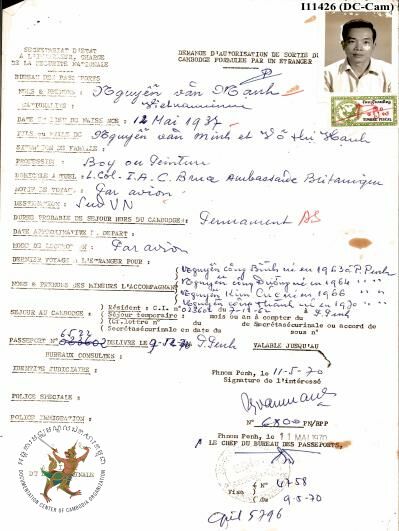 I11426 (DC-Cam)
SECRETARIAT D'ETAT
A L'INTERIEUR, CHARGE
DE LA SECURITE NATIONALE
BUREAU DES PASSEPORTS
DEMANDE D'AUTORISATION DE SORTIE DU
CAMBODGE FORMULEE PAR UN ETRANGER
NOMS & PRENOMS : Nguyễn văn Manh
NATIONALITE : Vietnamienne
DATE ET LIEU DE NAISSANCE : 12 Mai 1937
FILS ou FILLE DE Nguyễn văn Minh et Võ thị Hanh
SITUATION DE FAMILLE :
PROFESSION : Boy ou Peinture
DOMICILE ACTUEL : L. Col. I.A.C. Ambassade Britanique
MOTIF DU VOYAGE : Par avion
DESTINATION : Sud VN
DUREE PROBABLE DE SEJOUR HORS DU CAMBODGE : Permanent AS
DATE APPROXIMATIVE DE DEPART :
MODE DE LOCOMOTION : Par avion
DERNIER VOYAGE A L'ETRANGER POUR :
NOMS & PRENOMS DES MINEURS L'ACCOMPAGNANT
Nguyễn công Bình né en 1963 à P. Penh
Nguyễn công Đường né en 1964 " " "
Nguyễn Kim Cuc né en 1966 " " "
Nguyễn công Thành né en 1970 " " "
SEJOUR AU CAMBODGE :
Résident : C.I. n° 023602 du 7-12-62 à P. Penh
Séjour temporaire : mois ou an à compter du
du Secrétariat ou accord de
Secrétariat en date du sous n°
PASSEPORT N° 023602 DELIVRE LE P. Penh VALABLE JUSQU'AU
BUREAUX CONSULTES :
IDENTITE JUDICIAIRE :
Phnom Penh, le 11-5-70
Signature de l'intéressé
POLICE SPECIALE :
N° 6800 PN/BPP
POLICE IMMIGRATION :
Phnom Penh, le 11 MAI 1970
LE CHEF DU BUREAU DES PASSEPORTS,
DOCUMENTATION CENTER OF CAMBODIA ORGANIZATION
Visa N° 4758
9-5-70
5796